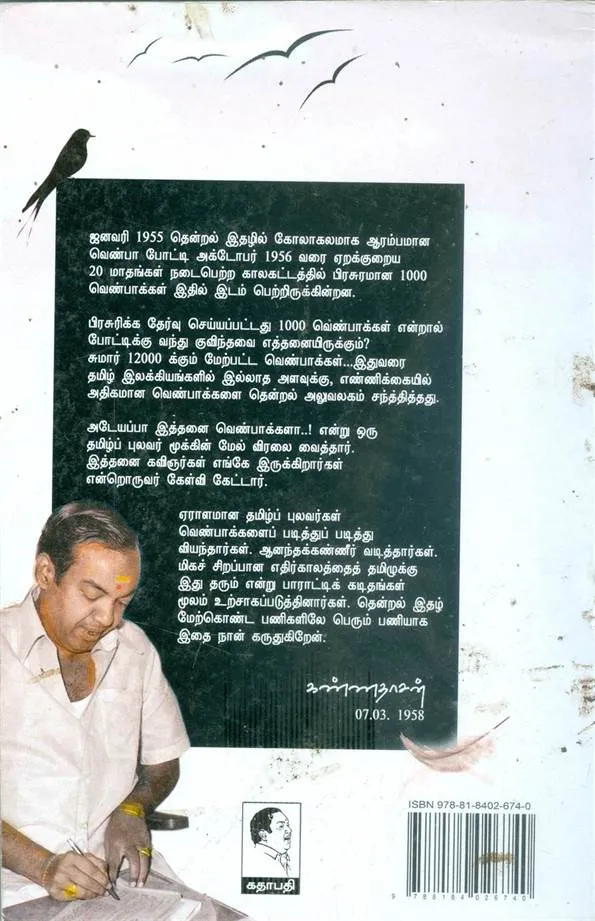 ஜனவரி 1955 தென்றல் இதழில் கோலாகலமாக ஆரம்பமான
வெண்பா போட்டி அக்டோபர் 1956 வரை ஏறக்குறைய
20 மாதங்கள் நடைபெற்ற காலகட்டத்தில் பிரசுரமான 1000
வெண்பாக்கள் இதில் இடம் பெற்றிருக்கின்றன.
பிரசுரிக்க தேர்வு செய்யப்பட்டது 1000 வெண்பாக்கள் என்றால்
போட்டிக்கு வந்து குவிந்தவை எத்தனையிருக்கும்?
சுமார் 12000 க்கும் மேற்பட்ட வெண்பாக்கள்...இதுவரை
தமிழ் இலக்கியங்களில் இல்லாத அளவுக்கு, எண்ணிக்கையில்
அதிகமான வெண்பாக்களை தென்றல் அலுவலகம் சந்த்தித்தது.
அடேயப்பா இத்தனை வெண்பாக்களா..! என்று ஒரு
தமிழ்ப் புலவர் மூக்கின் மேல் விரலை வைத்தார்.
இத்தனை கவிஞர்கள் எங்கே இருக்கிறார்கள்
என்றொருவர் கேள்வி கேட்டார்.
ஏராளமான தமிழ்ப் புலவர்கள்
வெண்பாக்களைப் படித்துப் படித்து
வியந்தார்கள். ஆனந்தக்கண்ணீர் வடித்தார்கள்.
மிகச் சிறப்பான எதிர்காலத்தைத் தமிழுக்கு
இது தரும் என்று பாராட்டிக் கடிதங்கள்
மூலம் உற்சாகப்படுத்தினார்கள். தென்றல் இதழ்
மேற்கொண்ட பணிகளிலே பெரும் பணியாக
இதை நான் கருதுகிறேன்.
கண்ணதாசன்
07.03. 1958
ISBN 978-81-8402-674-0
கதாபதி
9 788184 026740